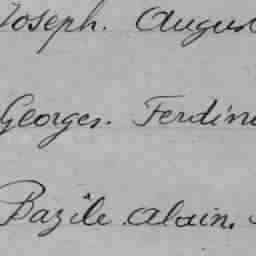 Joseph. August
Georges. Ferdin
Bazile Alain.